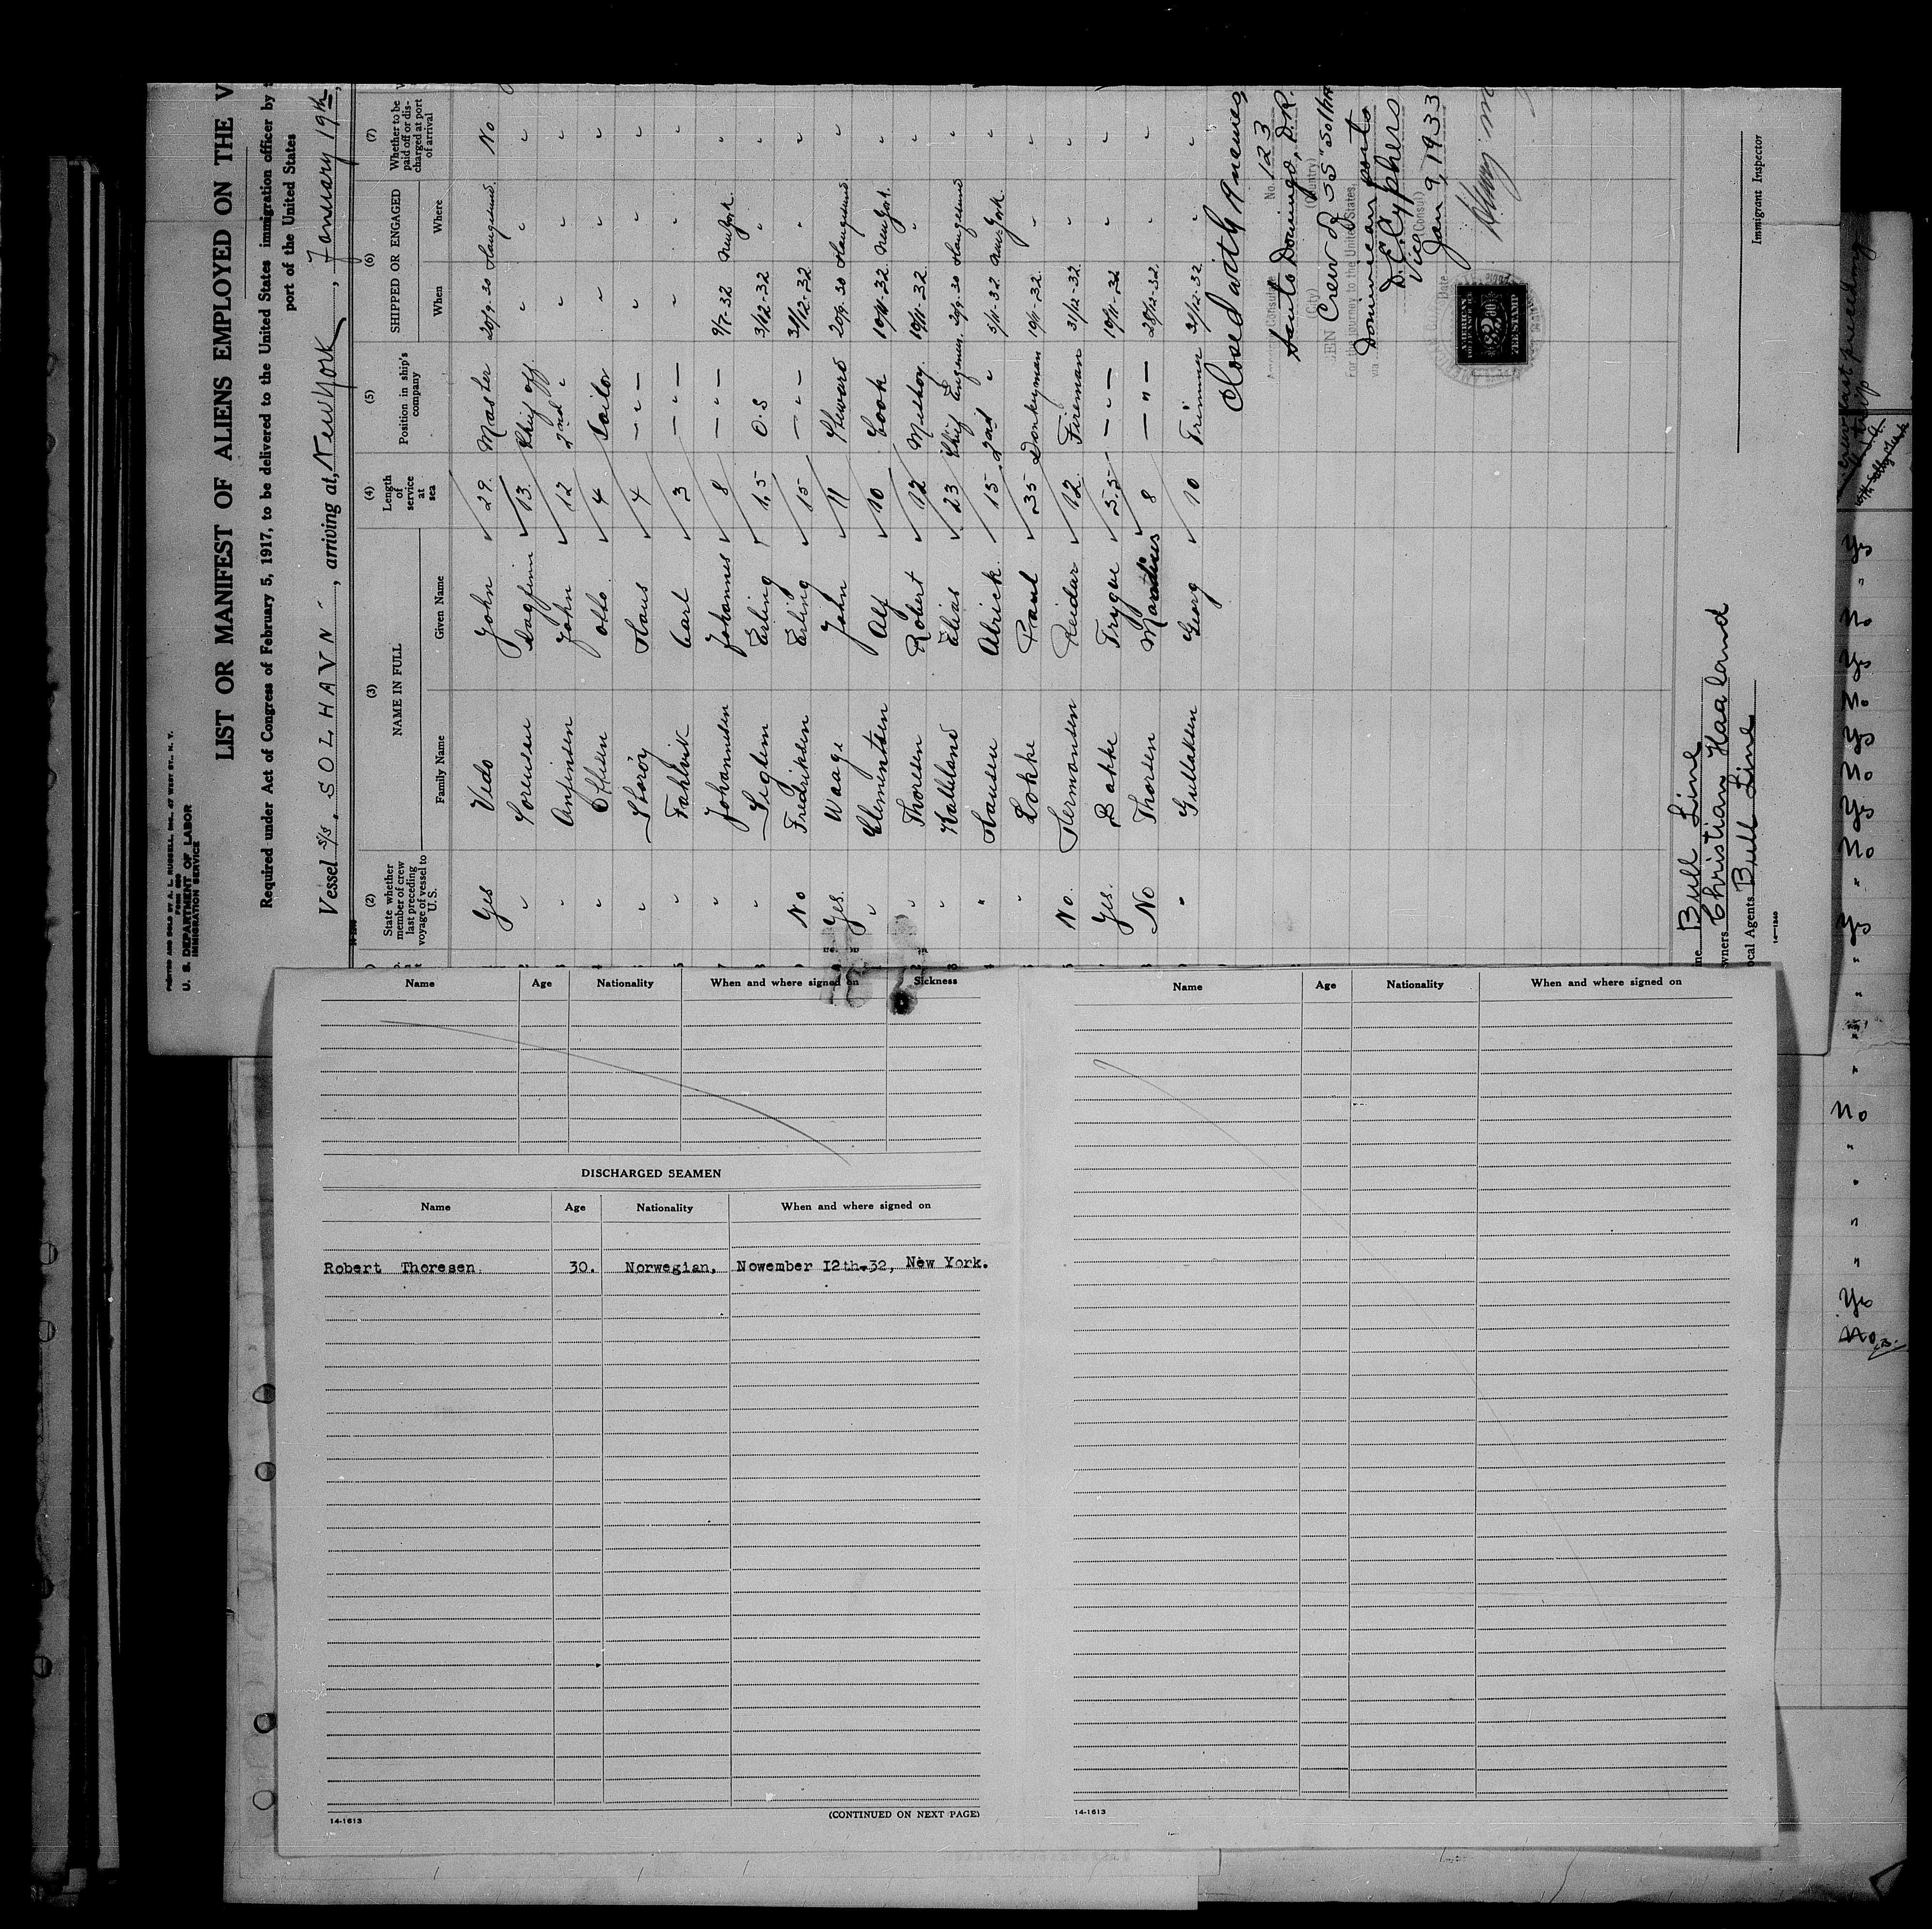 PRINTED AND SOLD BY A. L. RUSSELL, INC., 47 WEST ST., N. Y.
FORM 680
U. S. DEPARTMENT OF LABOR
IMMIGRATION SERVICE
LIST OR MANIFEST OF ALIENS EMPLOYED ON THE V
Required under Act of Congress of February 5, 1917, to be delivered to the United States immigration officer by
port of the United States
Vessel S/S. SOLHAVN, arriving at, New York, January 19th,
(2) (3) (4) (5) (6) (7)
State whether member of crew last preceding voyage of vessel to U.S. NAME IN FULL Length of service at sea Position in ship's company SHIPPED OR ENGAGED Whether to be paid off or discharged at port of arrival
Family Name Given Name When Where
Yes Vedo John 29. Master 20/9-30 Haugesund. No
" Sorensen Dagfinn 13. Chief off. " " "
" Anfinsen John 12 2nd " " " "
" Ottesen Otto 4 Sailor " " "
" Skaröy Hans 4 — " — " " "
" Carl 3 — " — " " "
" Johannesen Johannes 8 — " — 9/7-32 New York. "
" Seglem Erling 1,5 O.S 3/12-32 " "
No Fredriksen Erling 15 — " — 31/12-32 " "
Yes. Waage John 11 Steward 20/9-30 Haugesund. "
" Elmentsen Alf 10 Cook 19/11-32. New York. "
" Thoresen Robert 12 Messboy. 19/11-32. " "
" Kalleland Elias 23 Chief Engineer. 20/9-30 Haugesund "
" Hansen Alrick 15 2nd " 5/11-32 New York. "
" Lokke Paul 35 Donkeyman 19/11-32. " "
No. Hermansen Reidar 12. Fireman 31/12-32. " "
Yes. Bakke Trygve 5.5 — " — 19/11-32 " "
No Thorsen 8 — " — 28/12-32. "
" Gullaksen Georg 10 Trimmer 31/12-32. " "
Closed with 19 names
American Consulate No. 123
Santo Domingo, D.R.
(City) (Country)
SEEN Crew of "SS" Solhavn
For the journey to the United States,
via Dominican ports
D.E. Cyphers
Vice Consul
Date Jan 9, 1933
AMERICAN
FEE STAMP
Immigrant Inspector
Bull Line
Owners Christian Haaland
Local Agents Bull Line
14-1240
Yes
"
No
Yes
No
Yes
No
Yes
No
"
Yes
"
"
"
"
No
"
"
"
"
Yes
No
Name Age Nationality When and where signed on Sickness
DISCHARGED SEAMEN
Name Age Nationality When and where signed on
Robert Thoresen. 30. Norwegian, Nowember I2th-32, New York.
14-1613
(CONTINUED ON NEXT PAGE)
Name Age Nationality When and where signed on
14-1613